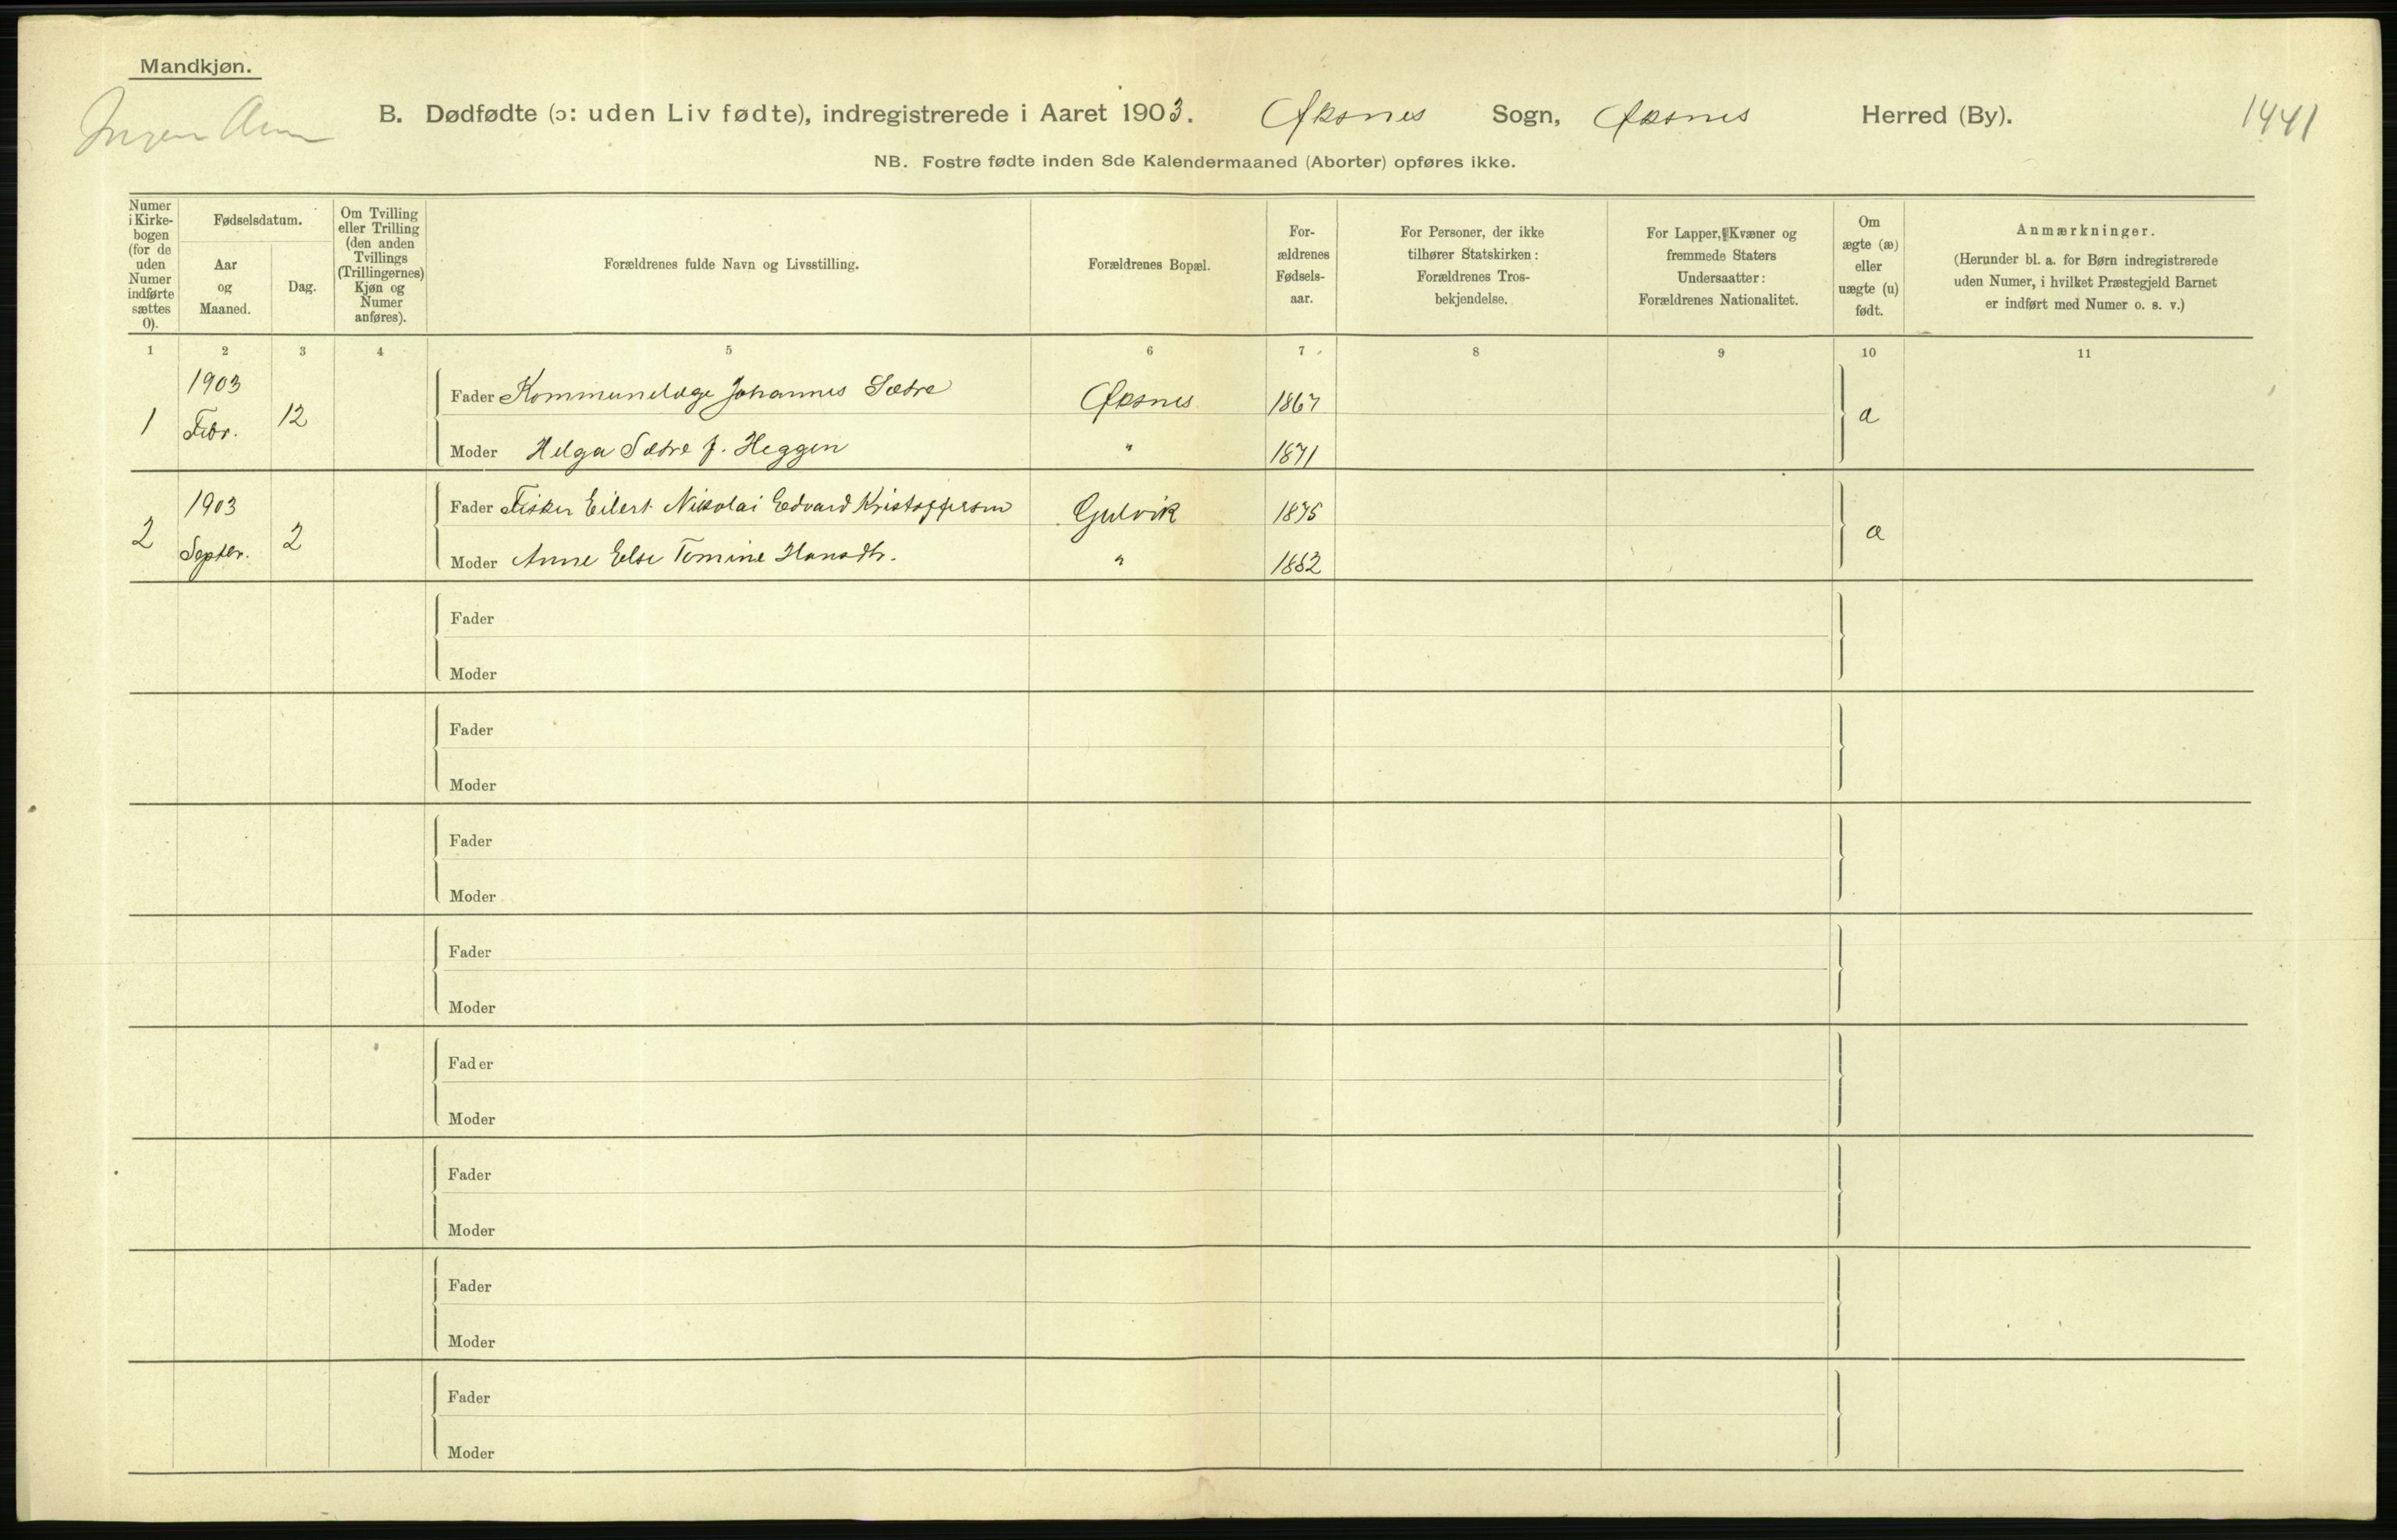 Mandkjøn.
B. Dødfødte (ɔ: uden Liv fødte), indregistrerede i Aaret 1903. Øksnes Sogn, Øksnes Herred (By).
1441
NB. Fostre fødte inden 8de Kalendermaaned (Aborter) opføres ikke.
Numer i Kirke-bogen (for de uden Numer indførte sættes 0).
Fødselsdatum.
Aar og Maaned.
Dag.
Om Tvilling eller Trilling (den anden Tvillings (Trillingernes) Kjøn og Numer anføres).
Forældrenes fulde Navn og Livsstilling.
Forældrenes Bopæl.
For-ældrenes Fødsels-aar.
For Personer, der ikke tilhører Statskirken: Forældrenes Tros-bekjendelse.
For Lapper, Kvæner og fremmede Staters Undersaatter: Forældrenes Nationalitet.
Om ægte (æ) eller uægte (u) født.
Anmærkninger. (Herunder bl. a. for Børn indregistrerede uden Numer, i hvilket Præstegjeld Barnet er indført med Numer o. s. v.)
1 2 3 4 5 6 7 8 9 10 11
1 1903 Febr. 12 Fader Kommunelæge Johannes Sætre Øksnes 1867 æ
Moder Helga Sætre f. Heggen " 1871
2 1903 Septbr. 2 Fader Fisker Eilert Nikolai Edvard Kristoffersen Gulvik 1875 æ
Moder Anne Else Tomine Hansdtr. " 1882
Fader
Moder
Fader
Moder
Fader
Moder
Fader
Moder
Fader
Moder
Fader
Moder
Fader
Moder
Fader
Moder